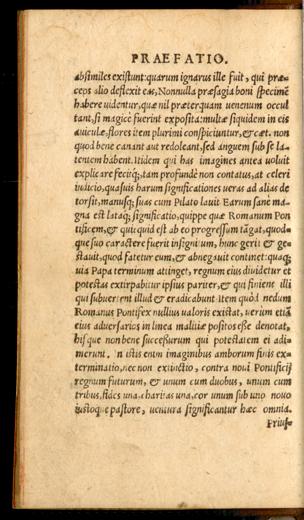 PRAEFATIO.
absimiles existunt: quarum ignarus ille fuit, qui præ-
ceps alio deflexit eas, Nonnulla præsagia boni specimẽ
habere uidentur, quæ nil præterquam uenenum occul
tant, si magicè fuerint exposita: multæ siquidem in eis
auiculæ, flores item plurimi conspiciuntur, & cæt. non
quod bene canant aut redoleant, sed anguem sub se la-
tentem habent. Itidem qui has imagines antea uoluit
explicare fecitq;, tam profundè non contatus, at celeri
iudicio, quasuis harum significationes ueras ad alias de
torsit, manusq; suas cum Pilato lauit Earum sanè ma-
gna est lataq; significatio, quippe quæ Romanum Pon
tificem, & quicquid est ab eo progressum tãgat, quod-
que suo caractere fuerit insignitum, hunc gerit & ge-
stauit, quod fatetur eum, & abnegauit continet: quaq;
uia Papa terminum attinget, regnum eius diuidetur et
potestas extirpabitur ipsius pariter, & qui finiens illi
qui subuertent illud & eradicabunt Item quòd nedum
Romanus Pontifex nullius ualoris existat, uerum etiã
eius aduersarios in linea malitiæ positos esse denotat,
hisque non bene successurum qui potestatem ei adi-
merunt. In istis enim imaginibus amborum finis ex-
terminatio, nec non extinctio, contra noui Pontificij
regnum futurum, & unum cum duobus, unum cum
tribus, fides una, charitas una, cor unum sub uno nouo
iustoque pastore, uentura significantur hæc omnia.
Prius-